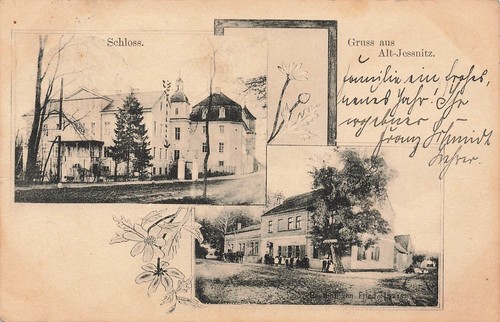 Schloss.
Gruss aus
Alt-Jessnitz.
Familie ein frohes,
neues Jahr! Ihr
ergebner
Franz Schmidt
Lehrer.